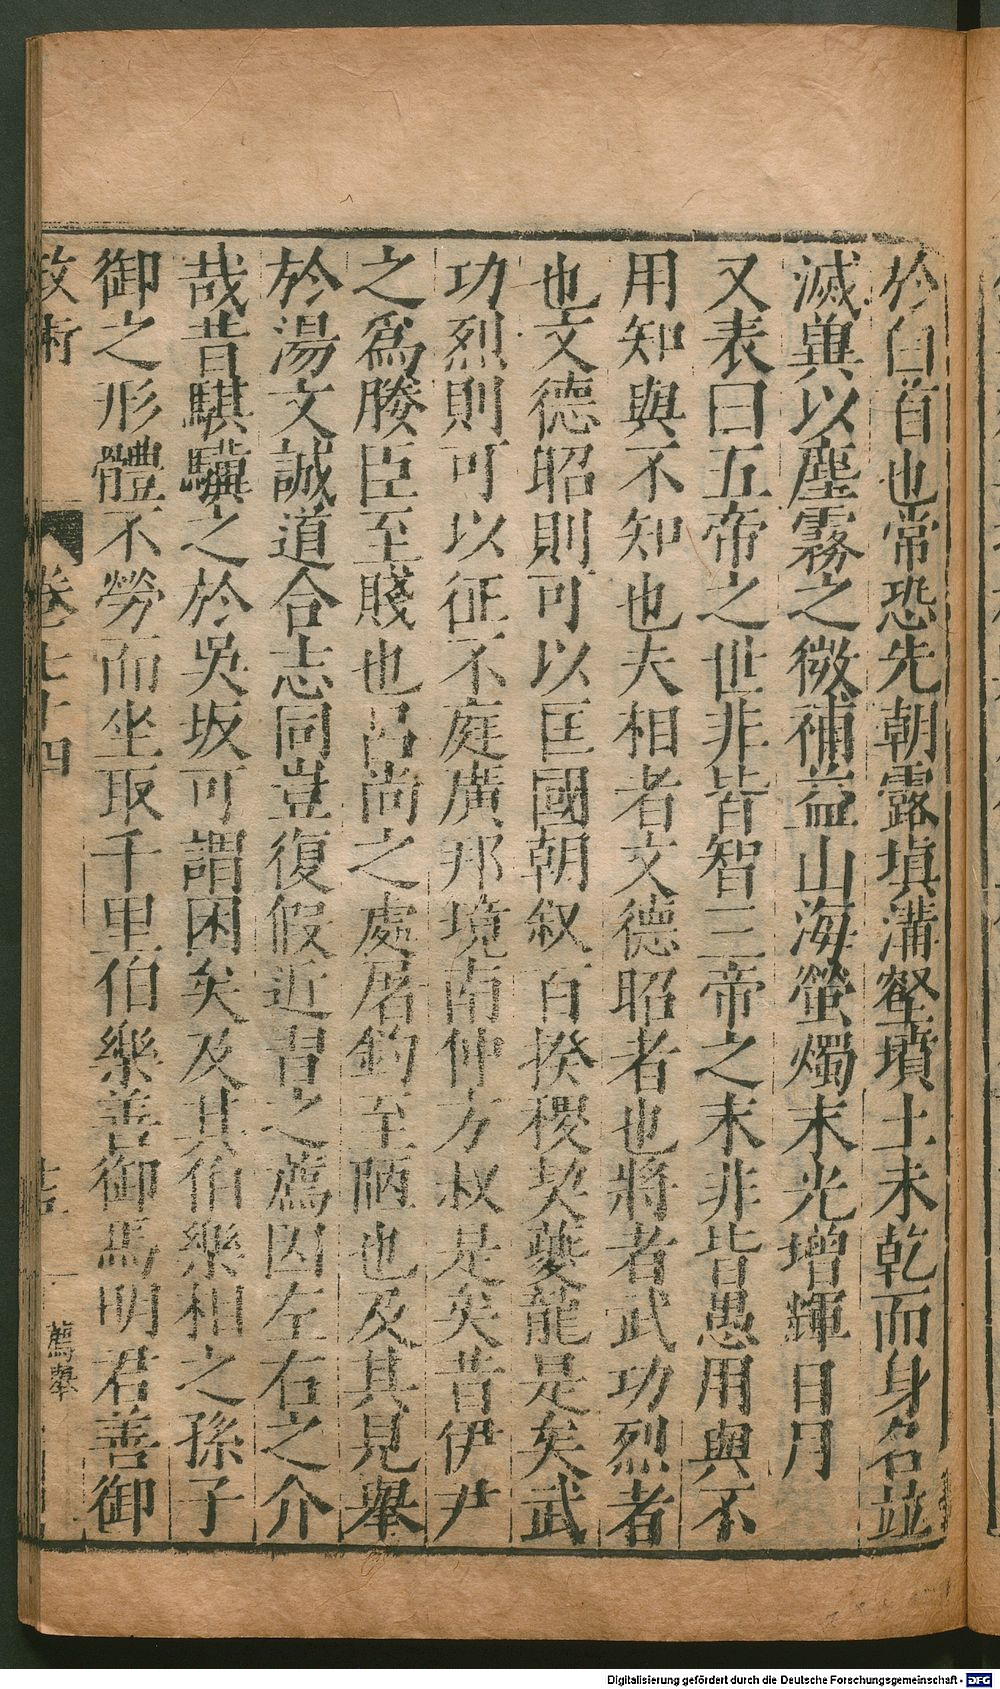 於白首也常恐先朝露填溝壑墳土未乾而身名並
滅冀以塵霧之微補益山海螢燭末光增輝日月
又表曰五帝之世非皆智三帝之末非皆愚用與不
用知與不知也夫相者文德昭者也將者武功烈者
也文德昭則可以匡國朝叙百揆稷契夔龍是矣武
功烈則可以征不庭廣邦境南仲方叔是矣昔伊尹
之為媵臣至賤也呂尚之處屠釣至陋也及其見舉
於湯文誠道合志同豈復假近習之薦因左右之介
哉昔騏驥之於吳坂可謂困矣及其伯樂相之孫子
御之形體不勞而坐取千里伯樂善御馬明君善御
政術 卷七十四 薦舉
Digitalisierung gefördert durch die Deutsche Forschungsgemeinschaft - DFG